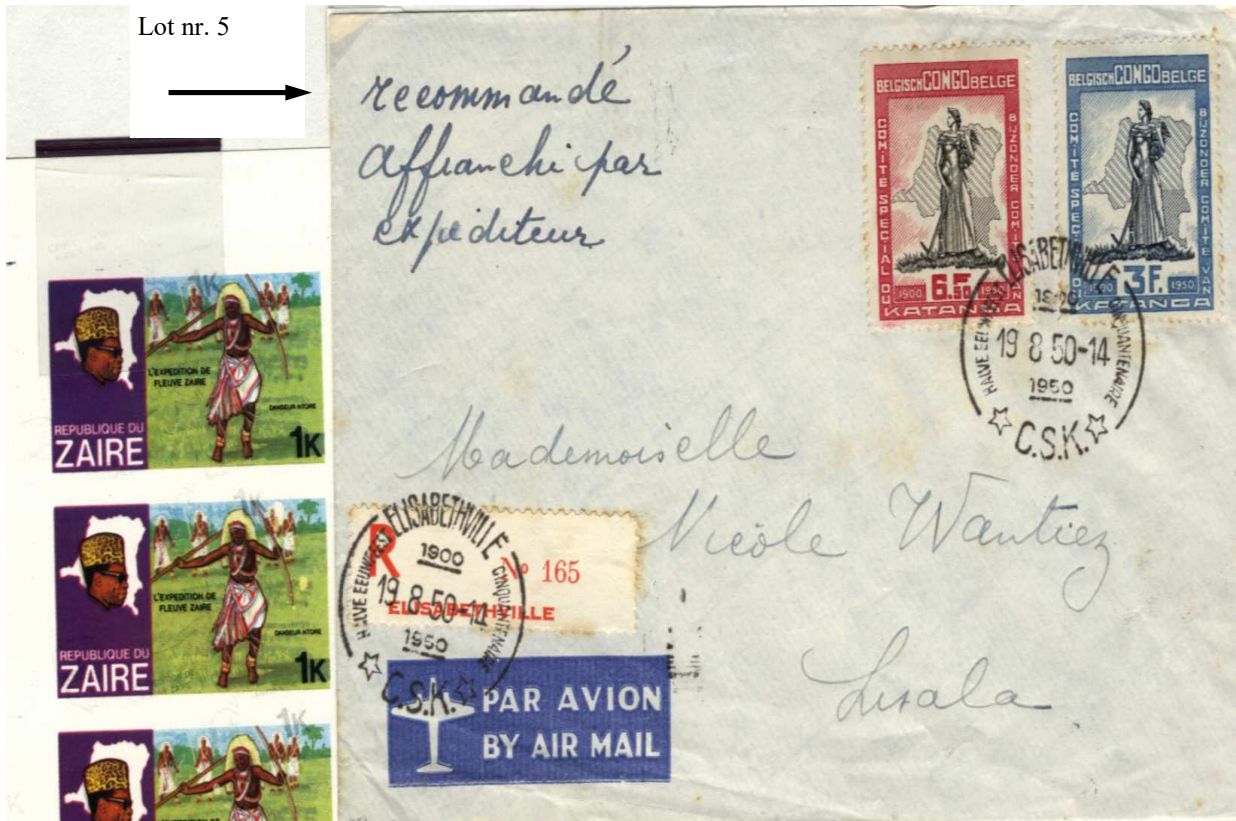 Lot nr. 5
recommandé
affranchi par
expéditeur
BELGISCH CONGO BELGE
COMITÉ SPECIAL DU
BIJZONDER COMITE VAN
6.50F
1900 1950
KATANGA
BELGISCH CONGO BELGE
COMITÉ SPECIAL DU
BIJZONDER COMITE VAN
3F.
1900 1950
KATANGA
ELISABETHVILLE
HALVE EEUWFEEST
CINQUANTENAIRE
1900
19 8 50-14
1950
C.S.K.
Mademoiselle
Nicole Wantiez
Lisala
R
Nº 165
ELISABETHVILLE
ELISABETHVILLE
HALVE EEUWFEEST
CINQUANTENAIRE
1900
19 8 50-14
1950
C.S.K.
PAR AVION
BY AIR MAIL
1K
L'EXPEDITION DE
FLEUVE ZAIRE
DANSEUR NTORE
REPUBLIQUE DU
ZAIRE
1K
1K
L'EXPEDITION DE
FLEUVE ZAIRE
DANSEUR NTORE
REPUBLIQUE DU
ZAIRE
1K
1K